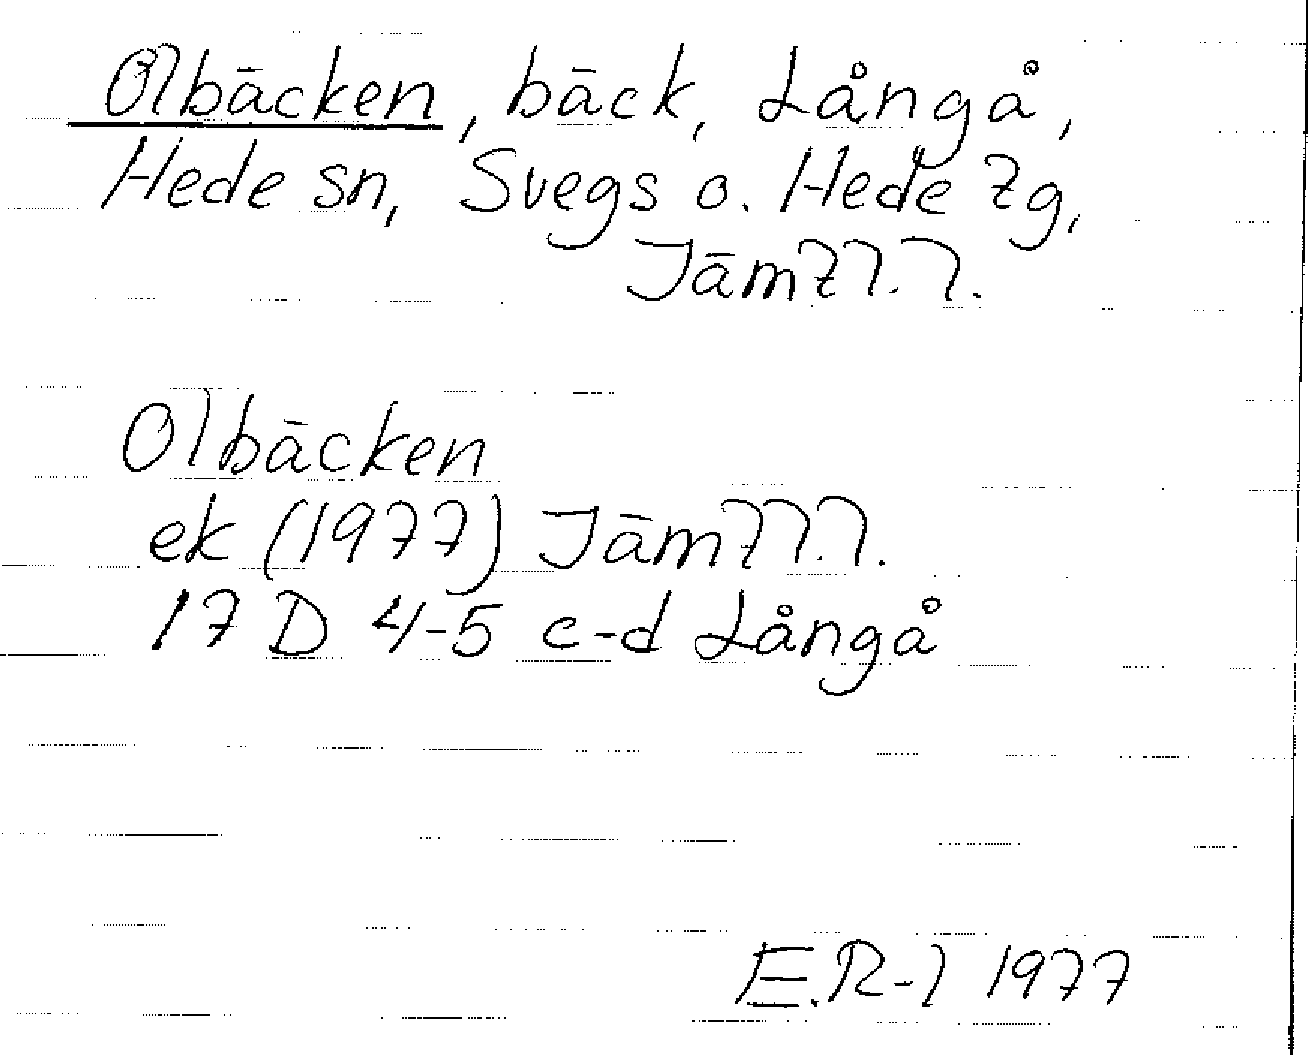 Olbäcken, bäck, Långå,
Hede sn, Svegs o. Hede tg,
Jämtl.l.
Olbäcken
ek (1977) Jämtl.l.
17 D 4-5 c-d Långå
E.R-l 1977